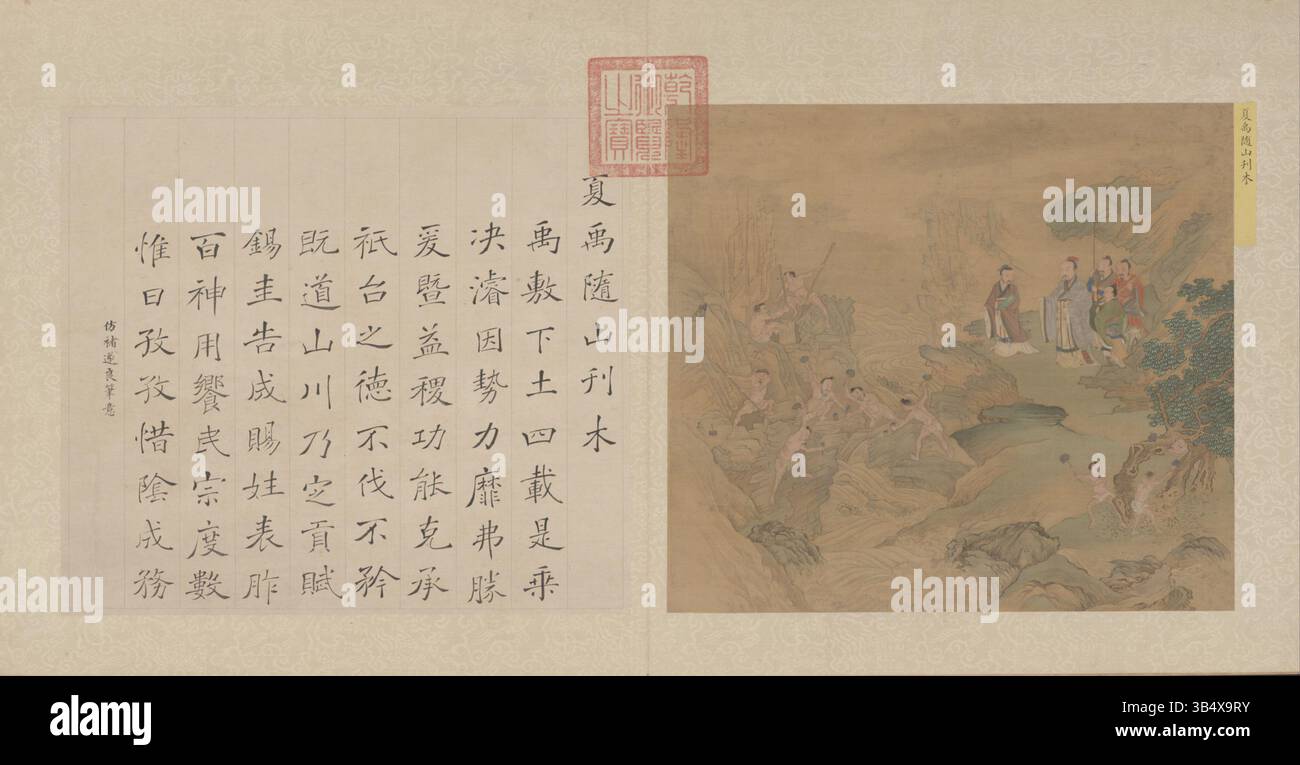 夏禹随山刊木
乾隆御覽之寶
夏禹隨山刊木
禹敷下土四載是乘
决濬因勢力靡弗勝
爰暨益稷功能克承
祇台之德不伐不矜
既道山川乃定貢賦
錫圭告成賜姓表胙
百神用饗民宗度數
惟日孜孜惜陰成務
仿褚遂良筆意
alamy
alamy
Image ID: 3B4X9RY
www.alamy.com